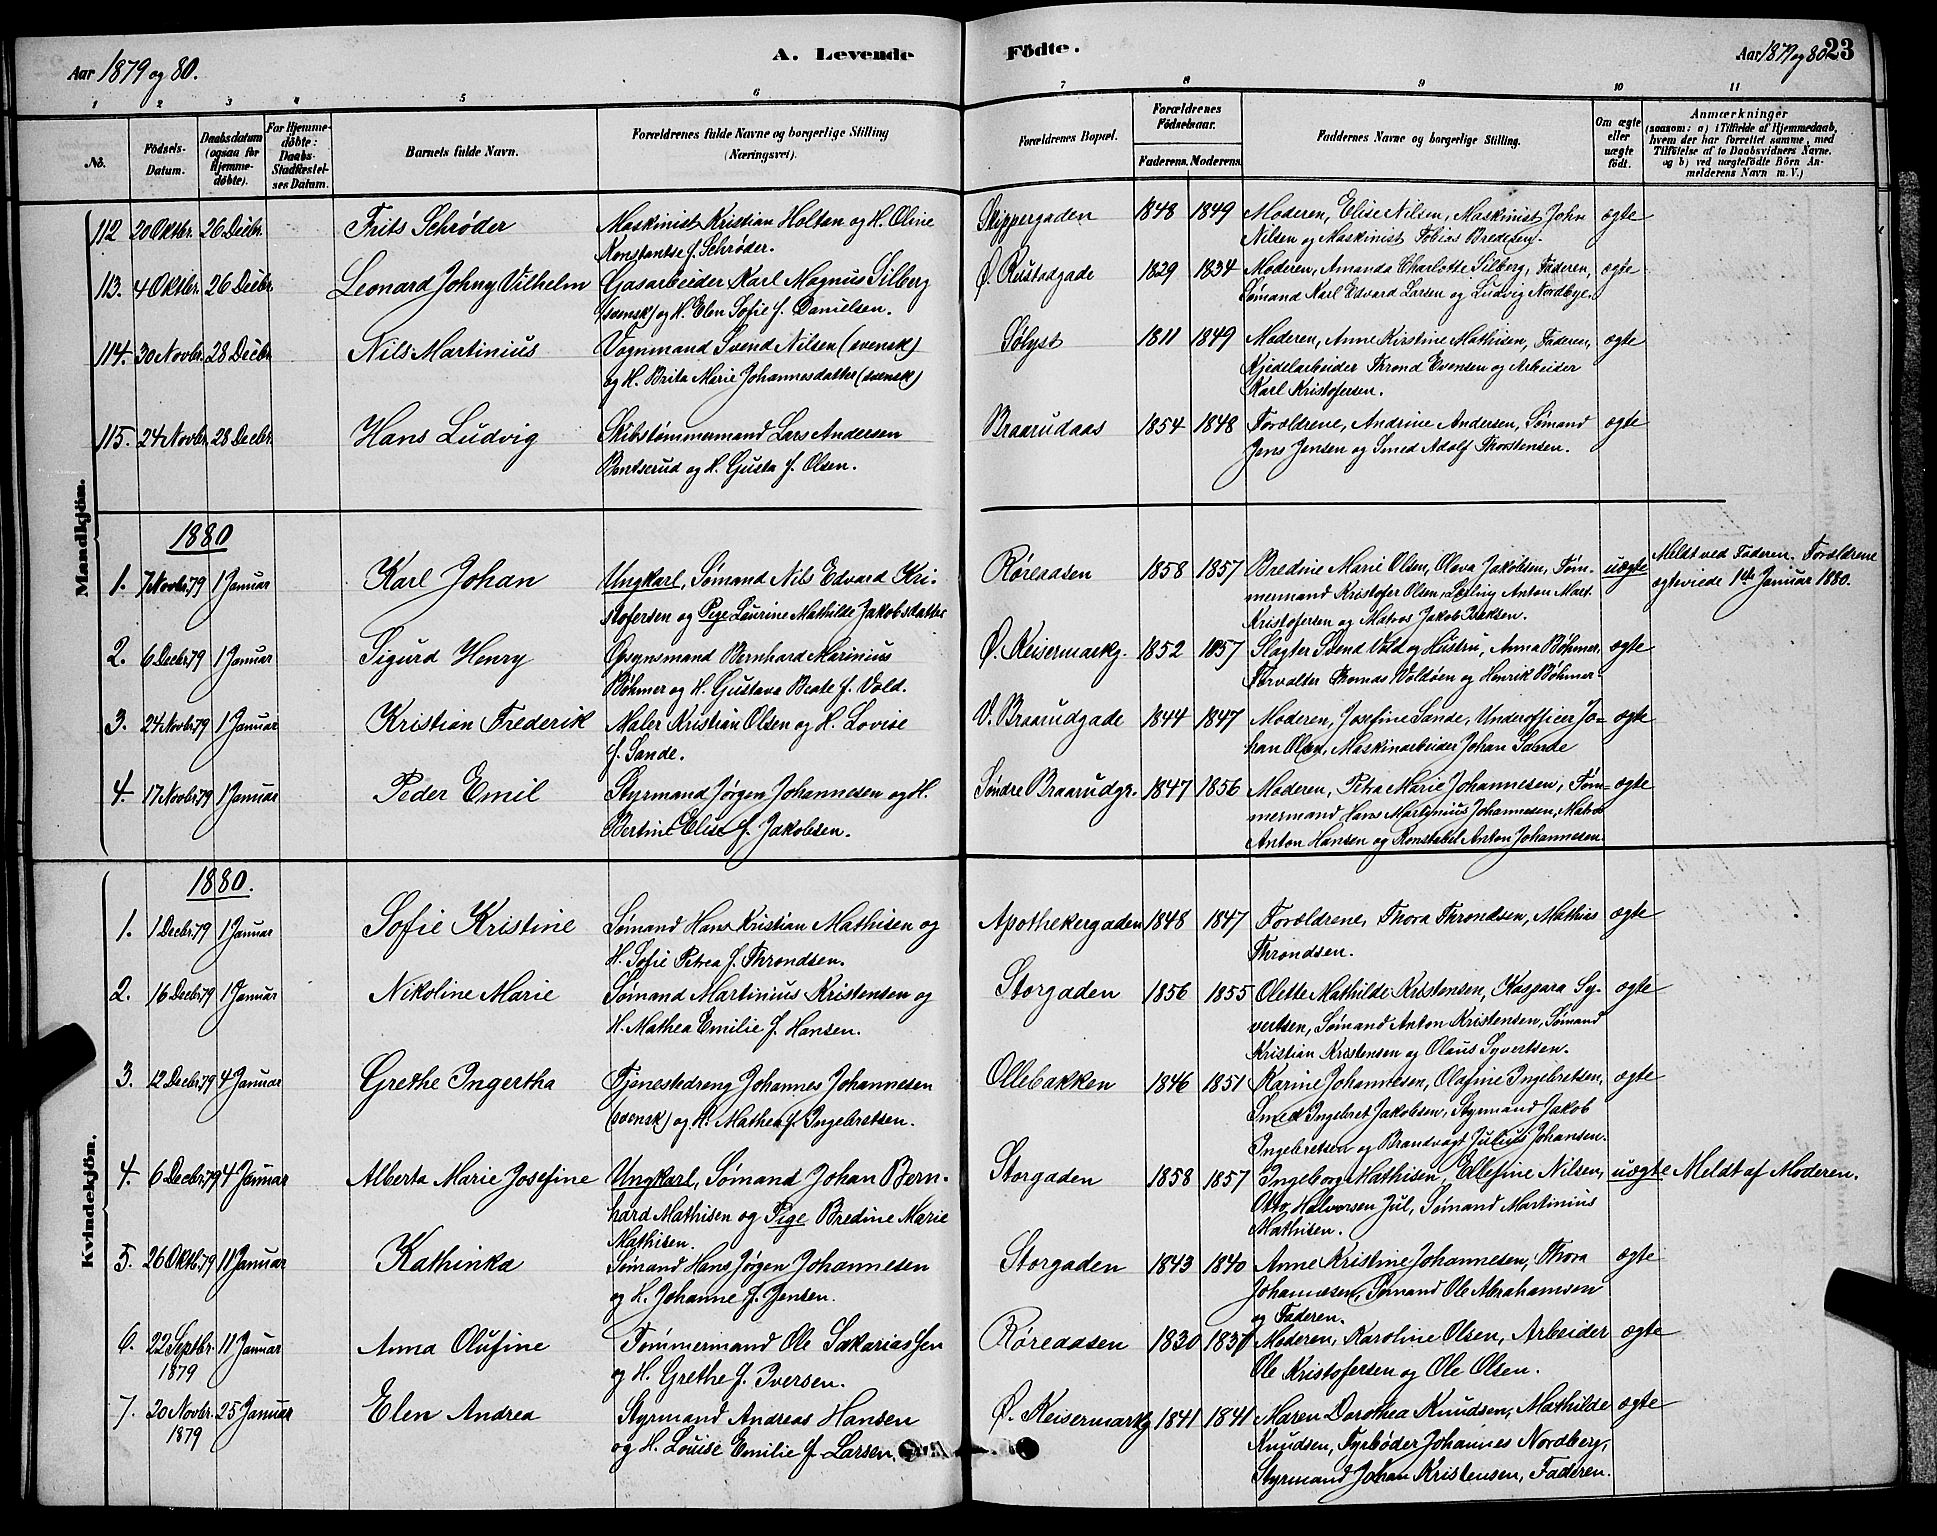 Aar 1879 og 80.
A. Levende
Födte.
Aar 1879 og 80
23
1 2 3 4 5 6
7 8 9 10 11
No.
Födsels-
Datum.
Daabsdatum
(ogsaa for
Hjemme-
döbte).
For Hjemme-
döbte:
Daabs-
Stadfæstel-
ses Datum.
Barnets fulde Navn.
Forældrenes fulde Navne og borgerlige Stilling
(Næringsvei).
Forældrenes Bopæl.
Forældrenes
Födselsaar.
Faderens. Moderens.
Faddernes Navne og borgerlige Stilling.
Om ægte
eller
uægte
födt.
Anmærkninger
(saasom: a) i Tilfælde af Hjemmedaab,
hvem der har forrettet samme, med
Tilföielse af to Daabsvidners Navne,
og b) ved uægtefödte Börn An-
melderens Navn m. V.)
Mandkjön.
112 20 Oktbr. 26 Decbr. Frits Schrøder Maskinist Kristian Holtan og H. Oline Skippergaden 1848 1849 Moderen, Elise Nilsen, Maskinist John ægte
Konstantse f. Schrøder. Nilsen og Maskinist Tobias Bredesen.
113. 4 Oktbr. 26 Decbr. Leonard Johny Vilhelm Gasarbeider Karl Magnus Silberg Ø. Rustadgade 1829 1834 Moderen, Amanda Charlotte Silberg, Faderen, ægte
(svensk) og H. Elen Sofie f. Danielsen. Sømand Karl Edvard Larsen og Ludvig Nordbye.
114. 30 Novbr. 28 Decbr. Nils Martinius Vognmand Svend Nilsen (svensk) Sølyst 1811 1849 Moderen, Anne Kirstine Mathisen, Faderen, ægte
og H. Brita Marie Johannesdatter (svensk) Kjedelarbeider Thrond Evensen og Arbeider
Karl Kristofersen.
115. 24 Novbr. 28 Decbr. Hans Ludvig Skibstømmermand Lars Andersen Braarudaas 1854 1848 Forældrene, Andrine Andersen, Sømand ægte
Bentserud og H. Gusta f. Olsen. Jens Jensen og Smed Adolf Thorstensen.
1880
1. 7 Novbr. 79 1 Januar Karl Johan Ungkarl, Sømand Nils Edvard Kri- Røreaasen 1858 1857 Bredine Marie Olsen, Olava Jakobsen, Tøm- uægte Meldt ved Faderen. Forældrene
stofersen og Pige Laurine Mathilde Jakobsdatter mermand Kristofer Olsen, Lærling Anton Mart. ægteviede 1ste Januar 1880.
Kristofersen og Matros Jakob Isaksen.
2. 6 Decbr. 79 1 Januar Sigurd Henry Opsynsmand Bernhard Marinius Ø. Keisermarkg. 1852 1857 Slagter Svend Vold og Hustru, Anna Bøhmer, ægte
Bøhmer og H. Gustava Beate f. Vold. Forvalter Thomas Voldøen og Henrik Bøhmer
3. 24 Novbr. 79 1 Januar Kristian Frederik Maler Kristian Olsen og H. Lovise V. Braarudgade 1844 1847 Moderen, Josefine Sande, Underofficer Jo- ægte
f. Sande. han Olsen, Maskinarbeider Johan Sande
4. 17 Novbr. 79 1 Januar Peder Emil Styrmand Jørgen Johannesen og H. Søndre Braarudgr. 1847 1856 Moderen, Petra Marie Johannesen, Tøm- ægte
Bertine Elise f. Jakobsen. mermand Hans Martinius Johannesen, Matros
Anton Hansen og Konstabel Anton Johannesen.
Kvindekjön.
1880.
1. 1 Decbr. 79 1 Januar Sofie Kristine Sømand Hans Kristian Mathisen og Apothekergaden 1848 1847 Forældrene, Thora Throndsen, Mathias ægte
H. Sofie Petrea f. Throndsen. Throndsen.
2. 16 Decbr. 79 1 Januar Nikoline Marie Sømand Martinius Kristensen og Storgaden 1856 1855 Olette Mathilde Kristensen, Kaspara Sy- ægte
H. Mathea Emilie f. Hansen. vertsen, Sømand Anton Kristensen, Sømand
Kristian Kristensen og Olaus Syvertsen.
3. 12 Decbr. 79 4 Januar Grethe Ingertha Tjenestedreng Johannes Johannesen Ollebakken 1846 1851 Karine Johannesen, Olafine Ingebretsen, ægte
(svensk) og H. Mathea f. Ingebretsen. Smed Ingebret Jakobsen, Styrmand Jakob
Ingebretsen og Brandvagt Julius Johansen.
4. 6 Decbr. 79 4 Januar Alberta Marie Josefine Ungkarl, Sømand Johan Bern- Storgaden 1858 1857 Ingeborg Mathisen, Ellefine Nilsen, uægte. Meldt af Moderen.
hard Mathisen og Pige Bredine Marie Otto Halvorsen Jul, Sømand Martinius
Mathisen. Mathisen.
5. 26 Oktb. 79 11 Januar Kathinka Sømand Hans Jørgen Johannesen Storgaden 1843 1840 Anne Kristine Johannesen, Thora ægte
og H. Johanne f. Jensen. Johannesen, Sømand Ole Abrahamsen
og Faderen.
6. 22 Septbr. 11 Januar Anna Olufine Tømmermand Ole Sakariassen Røreaasen 1830 1837 Moderen, Karoline Olsen, Arbeider ægte
1879 og H. Grethe f. Iversen. Ole Kristofersen og Ole Olsen.
7. 20 Novbr. 25 Januar Elen Andrea Styrmand Andreas Hansen Ø. Keisermarkg 1841 1841 Maren Dorothea Knudsen, Mathilde ægte
1879 og H. Louise Emilie f. Larsen. Knudsen, Fyrbøder Johannes Nordberg,
Styrmand Johan Kristensen, Faderen.